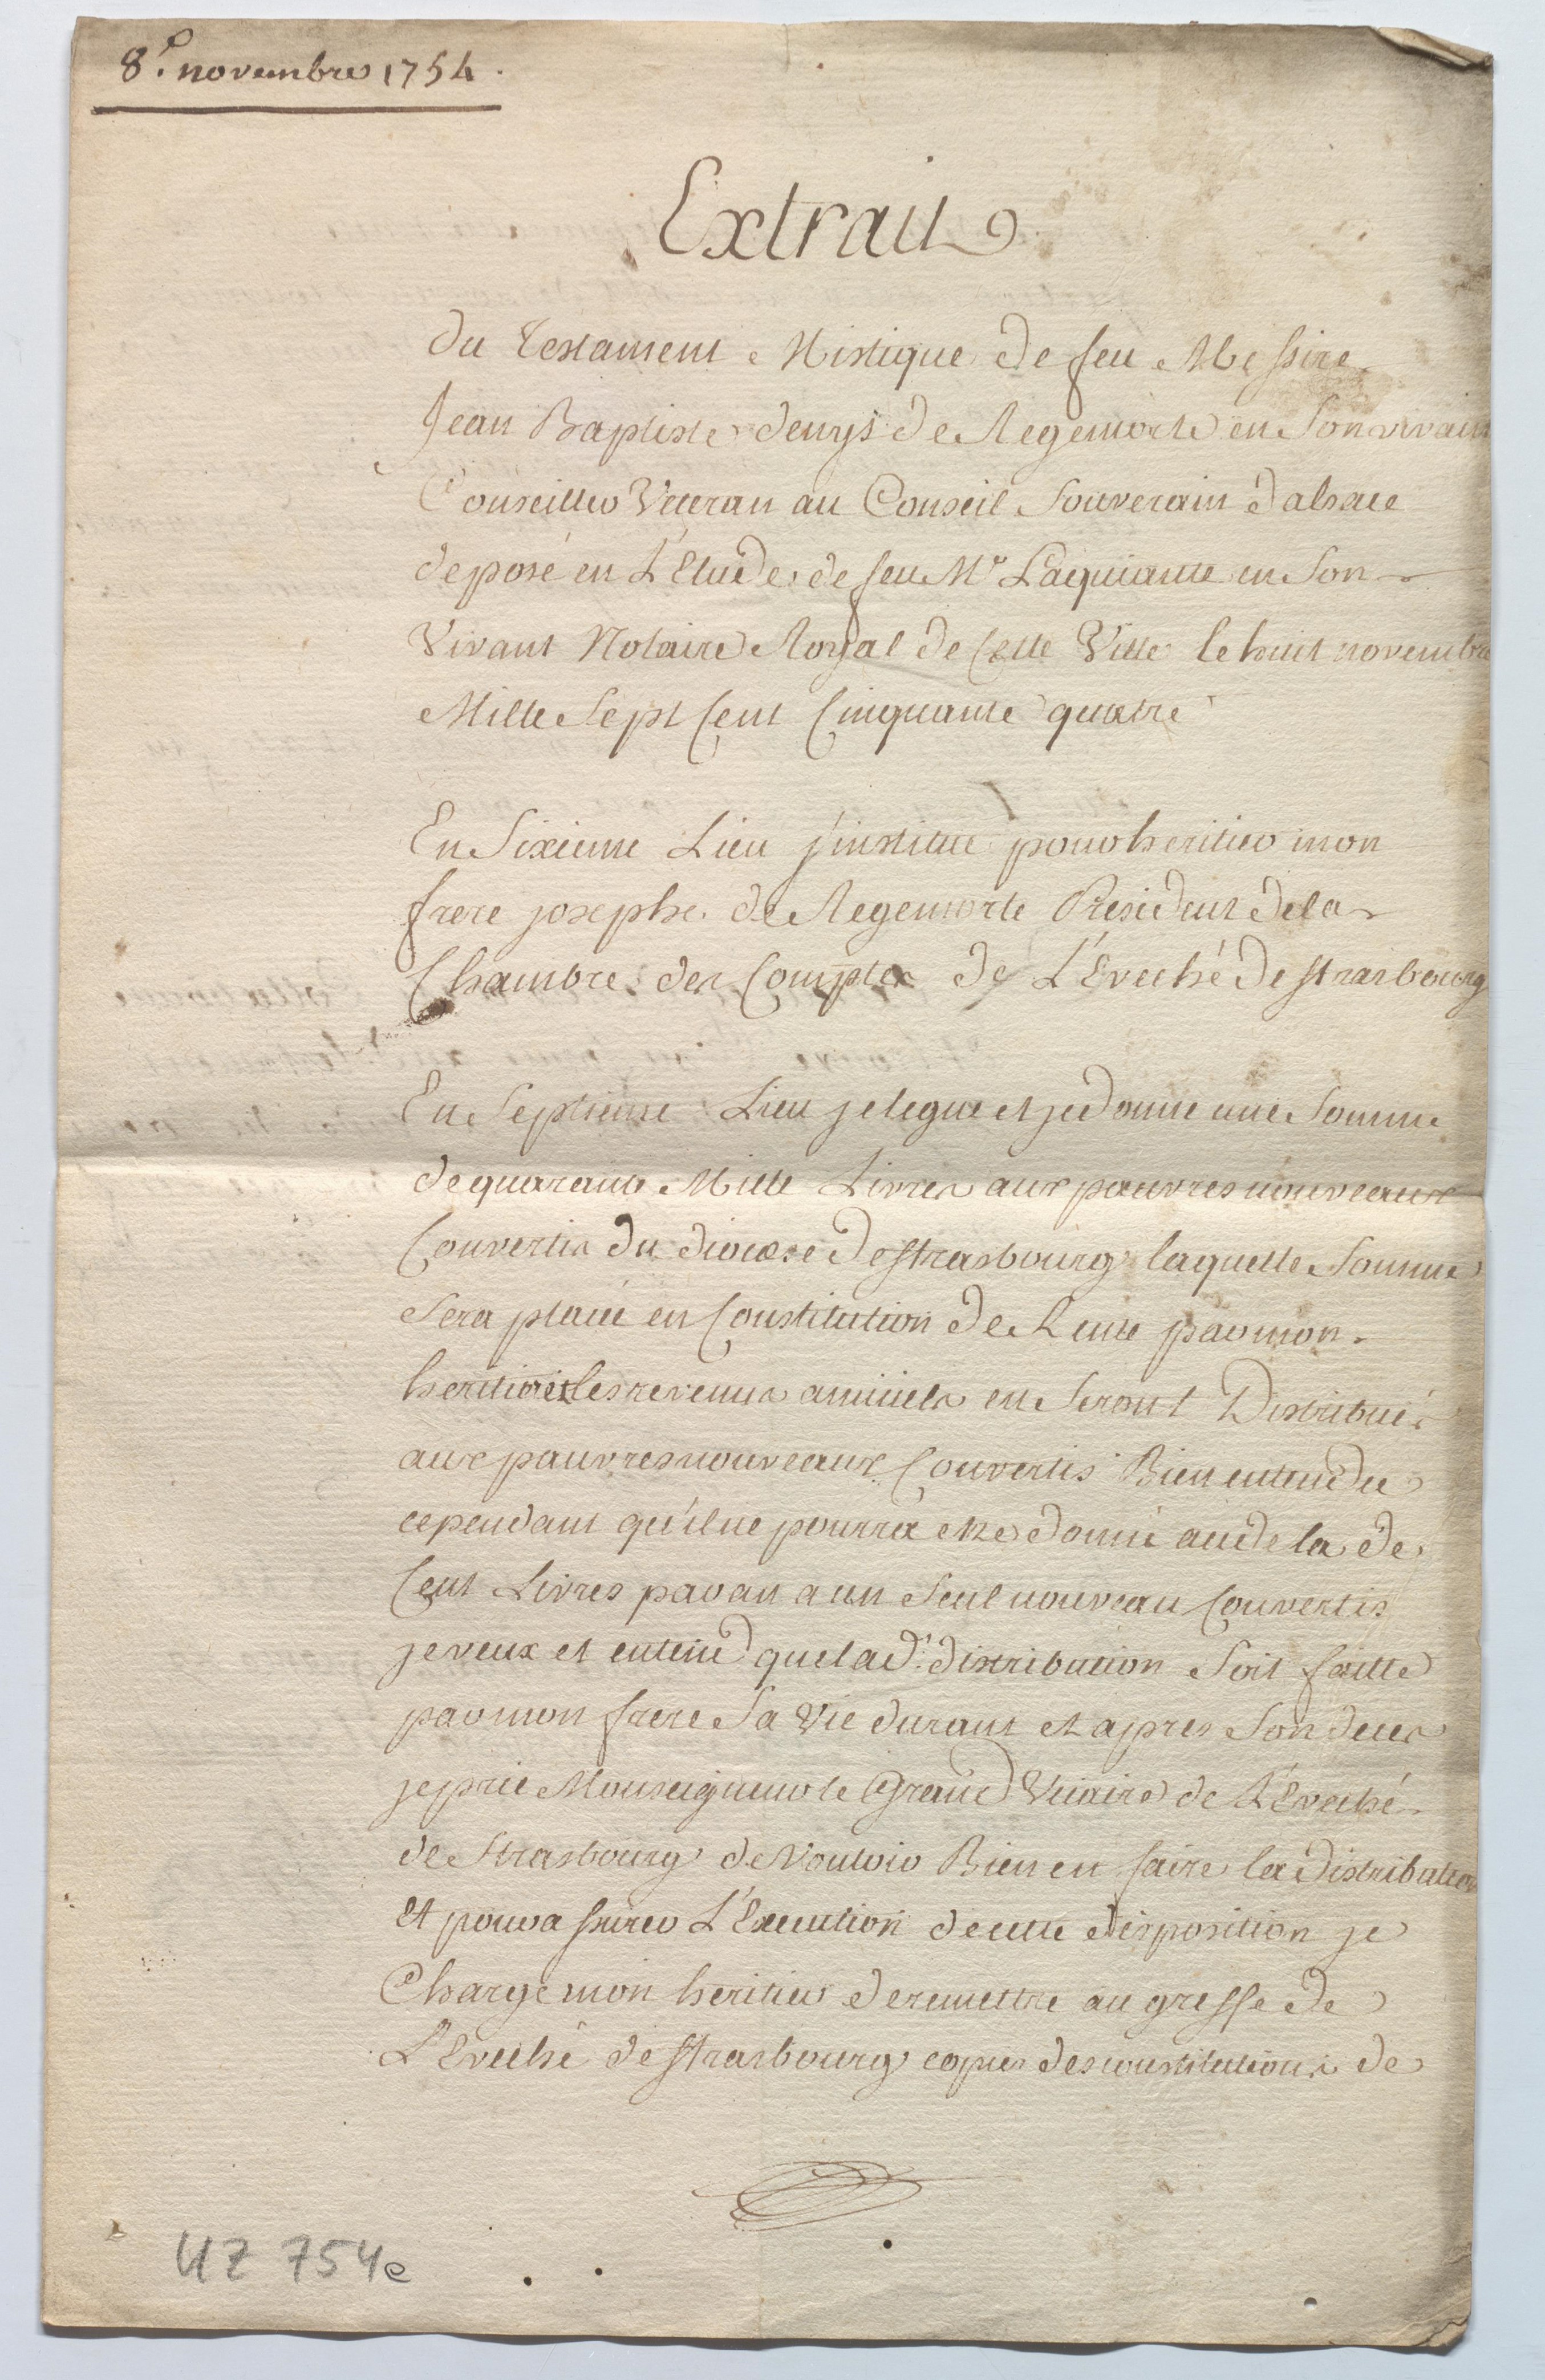 8.e novembre 1754.
Extrait
du Testament Mistique de feu Messire
Jean Baptiste denys de Regemorte en Son vivant
Conseiller Veteran au Conseil Souverain d'alsace
deposé en L'Etude de feu Mr. Laquiante en Son
Vivant Notaire Royal de Cette Ville le huit novembre
Mille Sept Cent Cinquante quatre
En Sixieme Lieu j'institue pour heritier mon
frere josephe de Regemorte President de la
Chambre des Comptes de L'Eveché de strasbourg
En Septieme Lieu je legue et je donne une Somme
de quarante Mille Livres aux pauvres nouveaux
Convertis du diocese de strasbourg laquelle Somme
Sera placée en Constitution de Rente par mon
heritier et les revenus annuels en Seront Distribués
aux pauvres nouveaux Convertis Bien entendu
cependant qu'il ne pourra etre donné au de la de
Cent Livres par an a un Seul nouveau Convertis
je veux et entend que lad. distribution Soit faitte
par mon frere Sa Vie durant et apres Son deces
je prie Monseigneur le Grand Vicaire de L'Eveché
de Strasbourg de Vouloir Bien en faire la distribution
Et pour assurer L'Execution de cette disposition je
Charge mon heritier de remettre au greffe de
L'Eveché de strasbourg copies des constitutions de
UZ 754e